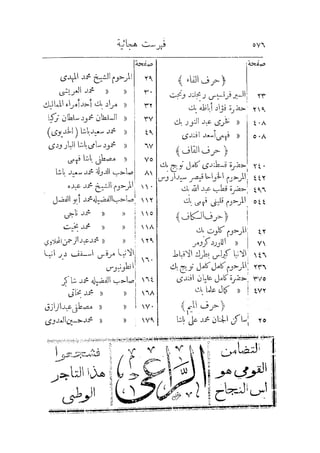 ٥٧٦ فهرست هجائية
صفحة
﴿ حرف الفاء ﴾
٢٣ السير فرنسيس ريجنلد ونجت
٢١٩ حضرة فؤاد أباظه بك
٤٠٨ » فخرى عبد النور بك
٥٠٨ » فهمى أسعد افندى
﴿ حرف القاف ﴾
٢٤٠ حضرة قسطندى كامل تويج بك
٤٤٢ المرحوم الخواجا قيصر سيداروس
٤٩٦ حضرة قطب عبد الله بك
٥٤٤ المرحوم قلينى فهمى بك
﴿ حرف الكاف ﴾
٤٢ المرحوم كلوت بك
٧١ » اللورد كرومر
١٤٦ الانبا كيرلس بطرك الاقباط
٢٣٦ المرحوم كامل كامل تويج بك
٣٧٥ حضرة كامل عليان افندى
٤٧٢ » كمال علما بك
﴿ حرف الميم ﴾
٢٥ ساكن الجنان محمد على باشا
صفحة
٢٩ المرحوم الشيخ محمد المهدى
٣١ » » محمد العريشى
٣٢ مراد بك أحد أمراء المماليك
٣٧ السلطان محمود سلطان تركيا
٤٩ محمد سعيد باشا (الخديوى)
٦٧ محمود سامى باشا البارودى
٧٥ مصطفى باشا فهمى
٨١ صاحب الدولة محمد سعيد باشا
١١٠ المرحوم الشيخ محمد عبده
١١٢ صاحب الفضيلة محمد أبو الفضل
١١٥ » » محمد ناجى
١١٨ » » محمد بخيت
١٢٩ » » محمد عبد الرحمن المحلاوى
١٦٠ الانبا مرقس اسقف دير انبا انطونيوس
١٦٤ صاحب الفضيلة محمد شاكر
١٦٨ » » محمد بخاتى
١٧٠ » » مصطفى عبد الرازق
١٧٩ » » محمد حسين العدوى
التضامن
القومى هو
اس النجاح
الراعى
فشجعوا
هذا التاجر
الوطنى